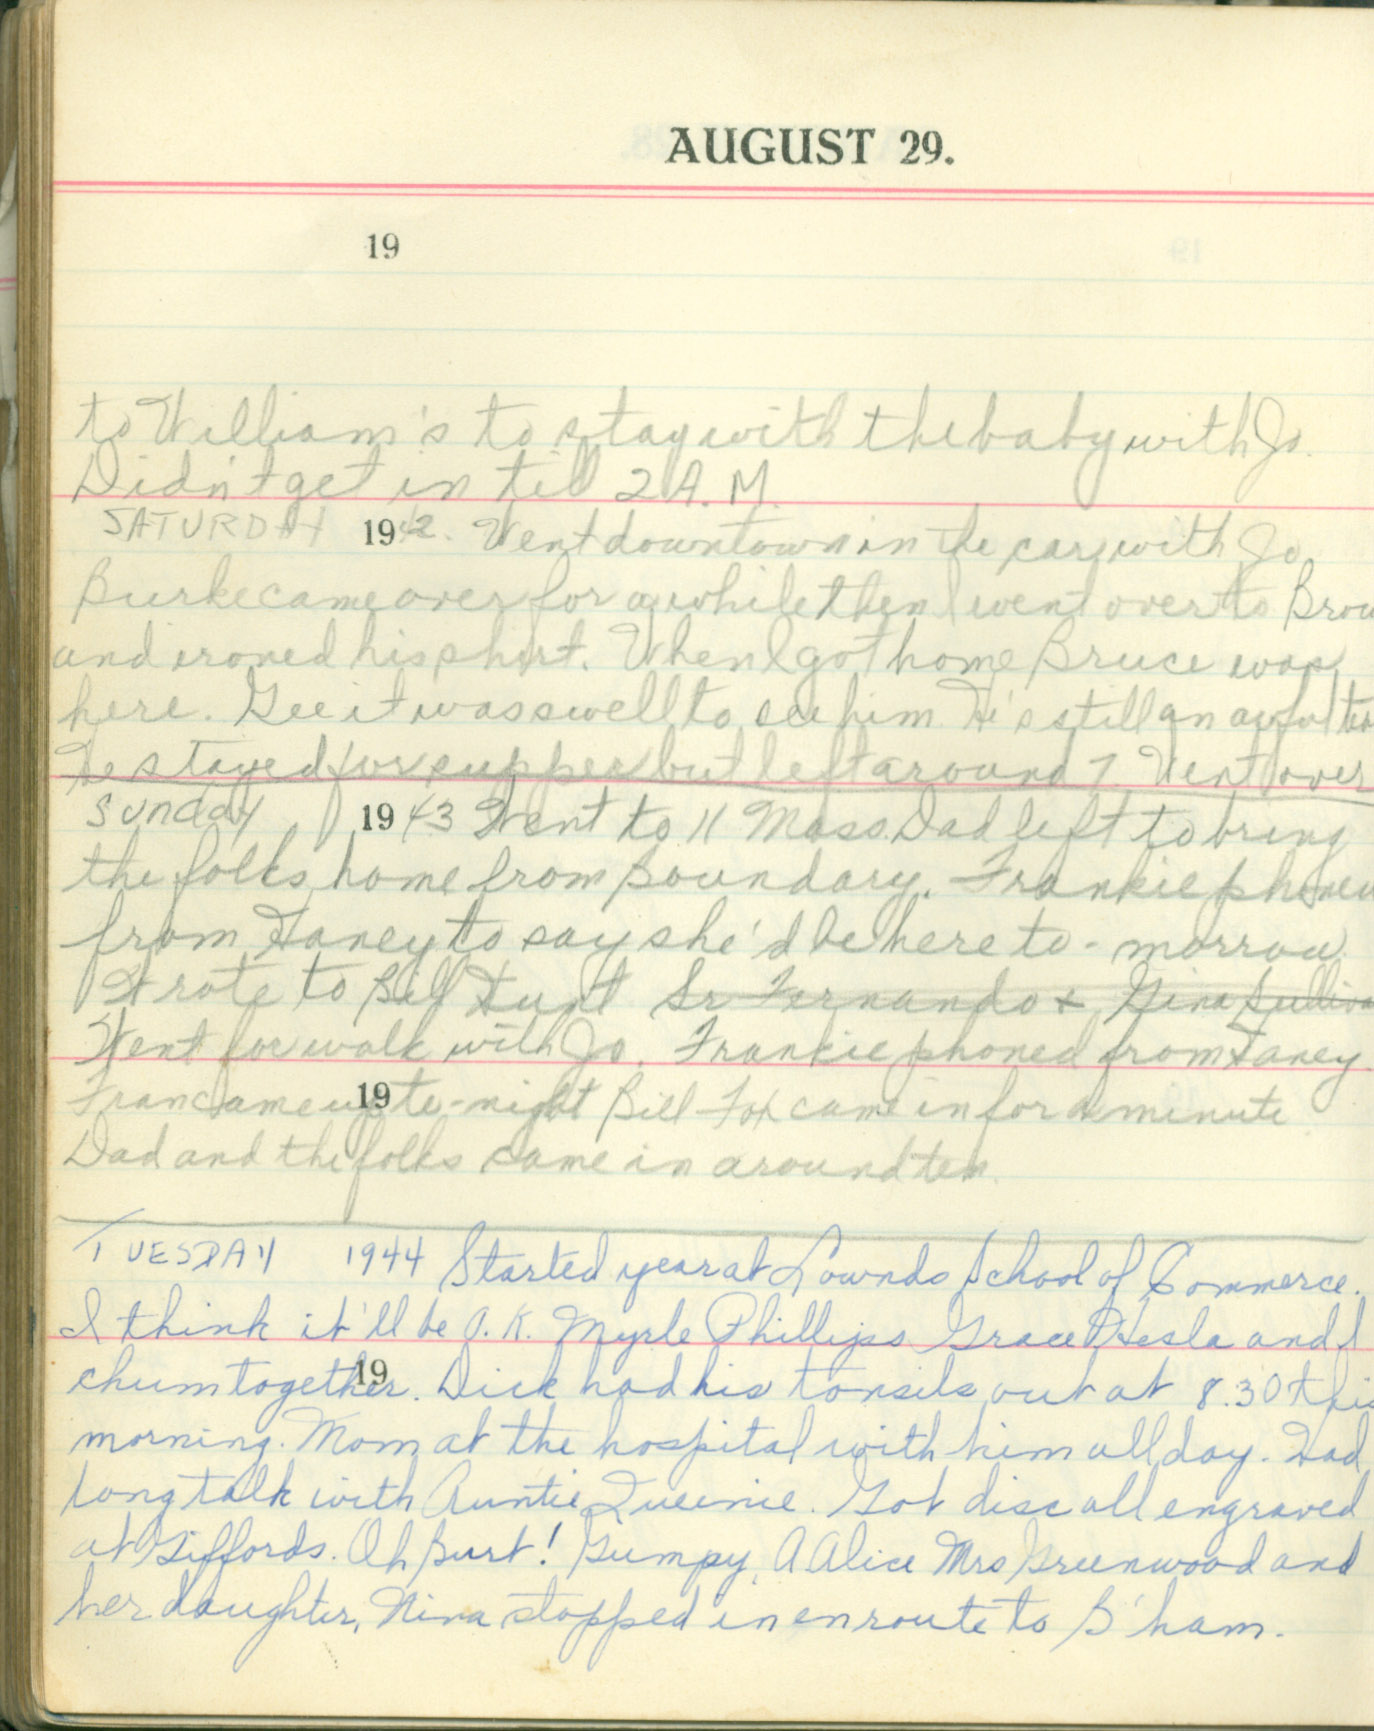 AUGUST 29.
19
to William's to stay with the baby with Jo.
Didn't get in till 2 A.M.
SATURDAY 1942. Went downtown in the car with Jo.
Burke came over for awhile then I went over to Brow
and ironed his shirt. When I got home Bruce was
here. Gee it was swell to see him. He's still an awful
He stayed for supper but left around 7. Went over
SUNDAY 1943 Went to 11 Mass. Dad left to bring
the folks home from Boundary. Frankie phoned
from Haney to say she'd be here to-morrow.
Wrote to Bill Hunt Sr Fernando + Gina Sulliva
Went for walk with Jo. Frankie phoned from Haney.
19
Fran came up to-night Bill Fox came in for a minute
Dad and the folks came in around ten.
TUESDAY 1944 Started year at Lownds School of Commerce.
I think it'll be O.K. Myrle Phillips Grace Hesla and I
19
chum together. Dick had his tonsils out at 8.30 this
morning. Mom at the hospital with him all day. Had
long talk with Auntie Queenie. Got disc all engraved
at Giffords. Oh Burt! Gumpy, A Alice Mrs Greenwood and
her daughter, Nina stopped in enroute to B'ham.